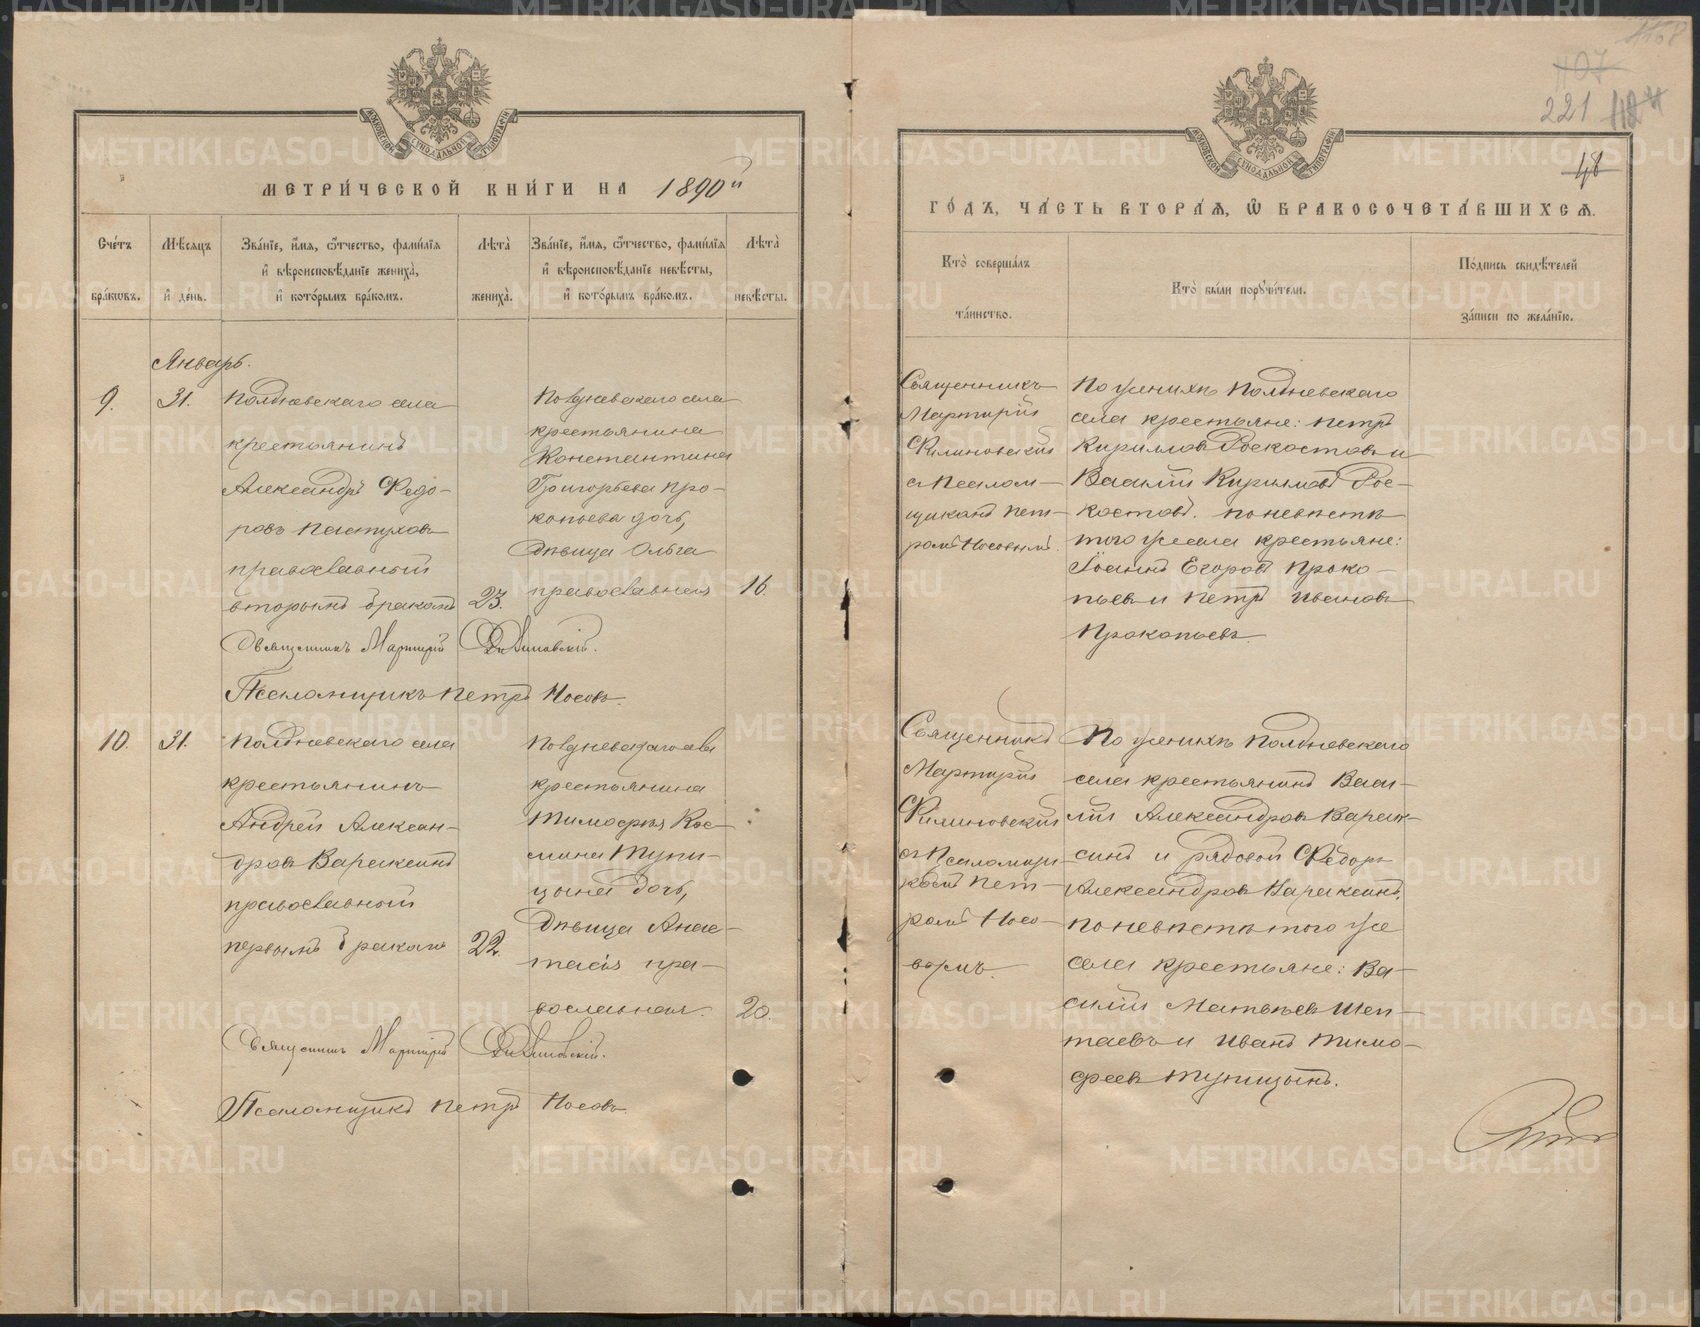 МОСКОВСКОЙ СѴНОДАЛЬНОЙ ТИПОГРАФІИ
МЕТРИ́ЧЕСКОЙ КНИ́ГИ НА 1890й
Сче́тъ бра́кѡвъ.
Мѣ́сяцъ и҆ де́нь.
Зва́нїе, и҆́мя, ѻ҆́тчество, фами́лїя
и҆ вѣроисповѣ́данїе жениха̀,
и҆ кото́рымъ бра́комъ.
Лѣта̀ жениха̀.
Зва́нїе, и҆́мя, ѻ҆́тчество, фами́лїя
и҆ вѣроисповѣ́данїе невѣ́сты,
и҆ кото́рымъ бра́комъ.
Лѣта̀ невѣ́сты.
Январь.
9.
31.
Полдневскаго села
крестьянинъ
Александръ Федо-
ровъ Пастуховъ
православный
вторымъ бракомъ
23.
Полдневскаго села
крестьянина
Константина
Григорьева Про-
копьева дочь,
Дѣвица Ольга
православная
16
Священникъ Мартирій Филиновскій.
Псаломщикъ Петръ Носовъ.
10.
31.
Полдневскаго села
крестьянинъ
Андрей Алексан-
дровъ Вараксинъ
православный
первымъ бракомъ
22.
Полдневскаго села
крестьянина
Тимофея Кос-
мина Тупи-
цына дочь,
Дѣвица Анас-
тасія пра-
вославная.
20.
Священникъ Мартирій Филиновскій.
Псаломщикъ Петръ Носовъ.
107
221
48
МОСКОВСКОЙ СѴНОДАЛЬНОЙ ТИПОГРАФІИ
ГО́ДЪ, ЧА́СТЬ ВТОРА́Я, Ѡ҆ БРАКОСОЧЕТА́ВШИХСЯ.
Кто̀ соверша́лъ
та́инство.
Кто̀ бы́ли порꙋчи́тели.
По́дпись свидѣ́телей
за́писи по жела́нїю.
Священникъ
Мартирій
Филиновскій
съ Псалом-
щикомъ Пет-
ромъ Носовымъ.
По женихѣ Полдневскаго
села крестьяне: Петръ
Кирилловъ Роскостовъ и
Василій Кирилловъ Рос-
костовъ. По невѣстѣ
того же села крестьяне:
Іоаннъ Егоровъ Проко-
пьевъ и Петръ Ивановъ
Прокопьевъ.
Священникъ
Мартирій
Филиновскій
съ Псаломщи-
комъ Пет-
ромъ Носо-
вымъ.
По женихѣ Полдневскаго
села крестьянинъ Васи-
лій Александровъ Варак-
синъ и рядовой Федоръ
Александровъ Вараксинъ.
По невѣстѣ того же
села крестьяне: Ва-
силій Матвѣевъ Шеп-
таевъ и Иванъ Тимо-
феевъ Тупицынъ.
METRIKI.GASO-URAL.RU